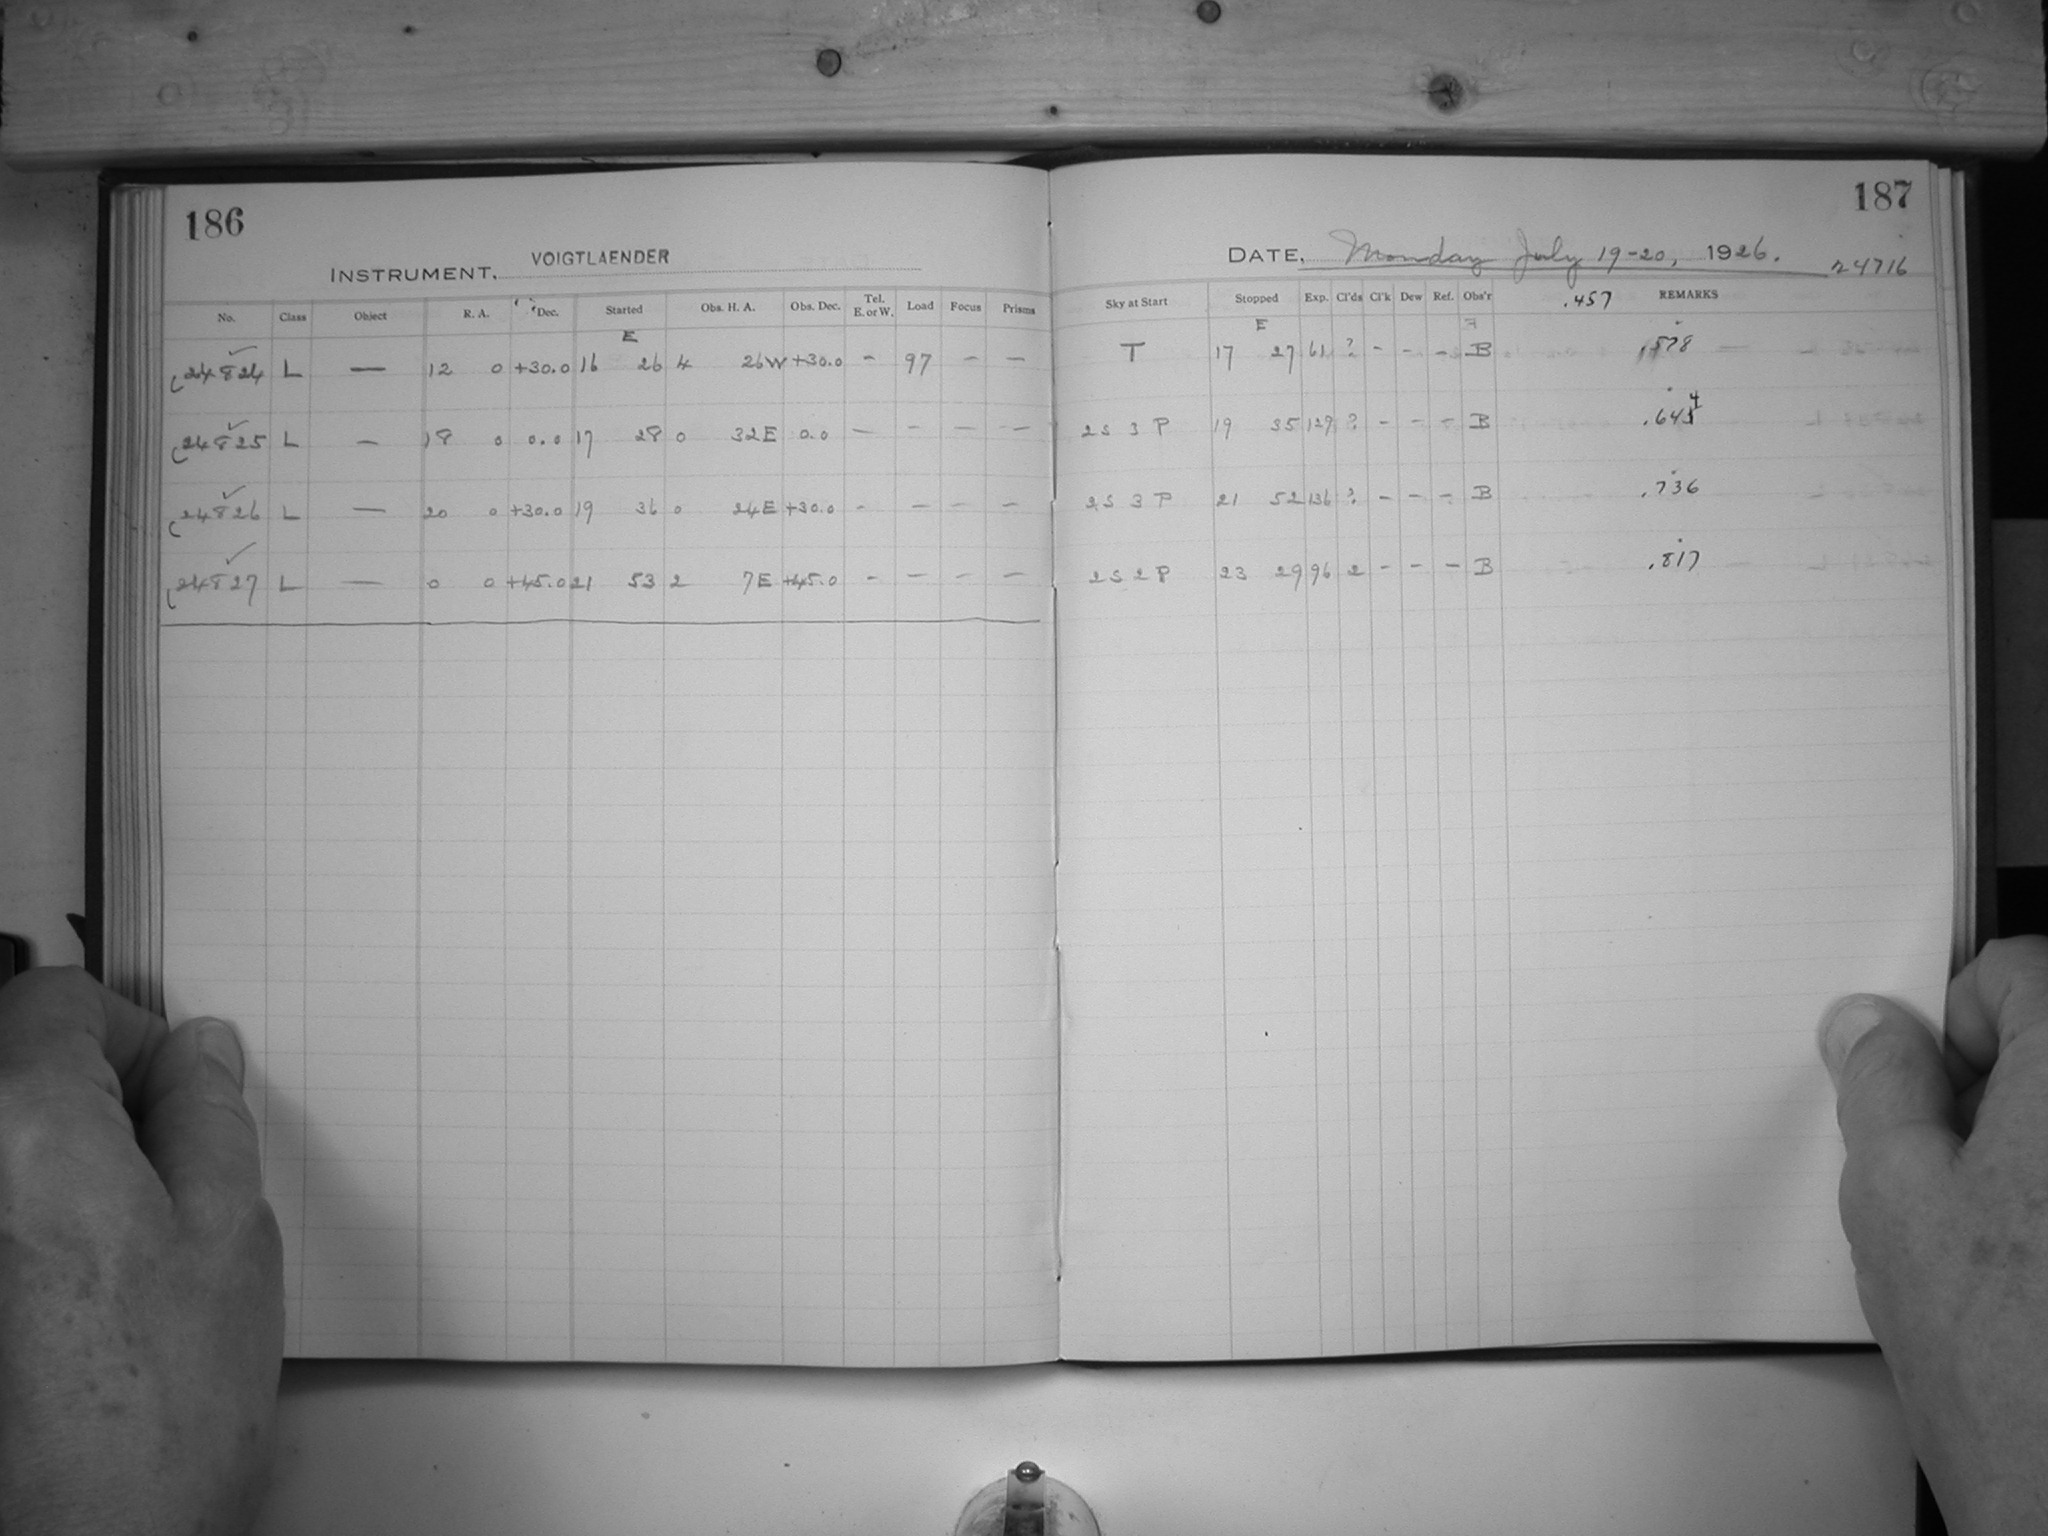 186
INSTRUMENT. VOIGTLAENDER
No. Class Object R. A. Dec. Started Obs. H. A. Obs. Dec. Tel. E. or W. Load Focus Prisms
E
24824 L — 12 0 +30.0 16 26 4 26W +30.0 - 97 - -
24825 L — 18 0 0.0 17 28 0 32E 0.0 — - - -
24826 L — 20 0 +30.0 19 36 0 24E +30.0 - - - -
24827 L — 0 0 +45.0 21 53 2 7E +45.0 - - - -
187
DATE. Monday July 19-20, 1926. 24716
Sky at Start Stopped Exp. Cl'ds Cl'k Dew Ref. Obs'r .457 REMARKS
E
T 17 27 61 ? - - - B .578
2S 3 P 19 35 127 ? - - - B .644
2S 3 P 21 52 136 ? - - - B .736
2S 2 P 23 29 96 2 - - - B .817